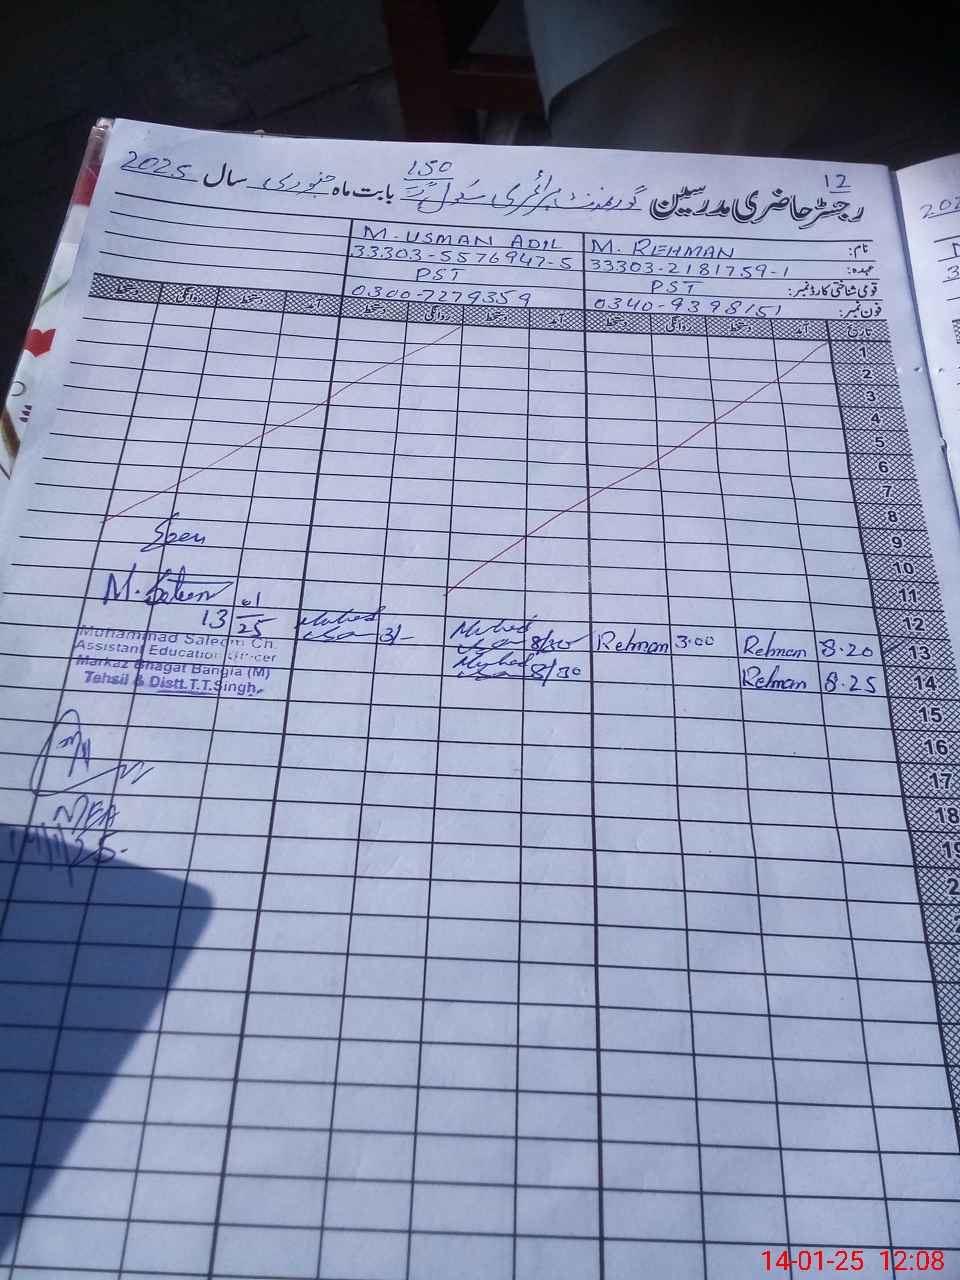 12
رجسٹر حاضری مدرسین گورنمنٹ پرائمری سکول 150 بابت ماہ جنوری سال 2025
نام: M. REHMAN M. USMAN ADIL
عہدہ: 33303-2181759-1 33303-5576947-5
قومی شناختی کارڈ نمبر: PST PST
فون نمبر: 0340-9398151 0300-7279359
تاریخ آمد دستخط روانگی دستخط آمد دستخط روانگی دستخط آمد دستخط روانگی دستخط
1
2
3
4
5
6
7
8
9
10
11
12
13 8.20 Rehman 3.00 Rehman 8/30 3/-
14 8.25 Rehman 8/30
15
16
17
18
19
Seen
M. Saleem
13/01/25
Muhammad Saleem Ch.
Assistant Education Officer
Markaz Bhagat Bangla (M)
Tehsil & Distt. T.T.Singh.
MEA
14/1/25.
14-01-25 12:08